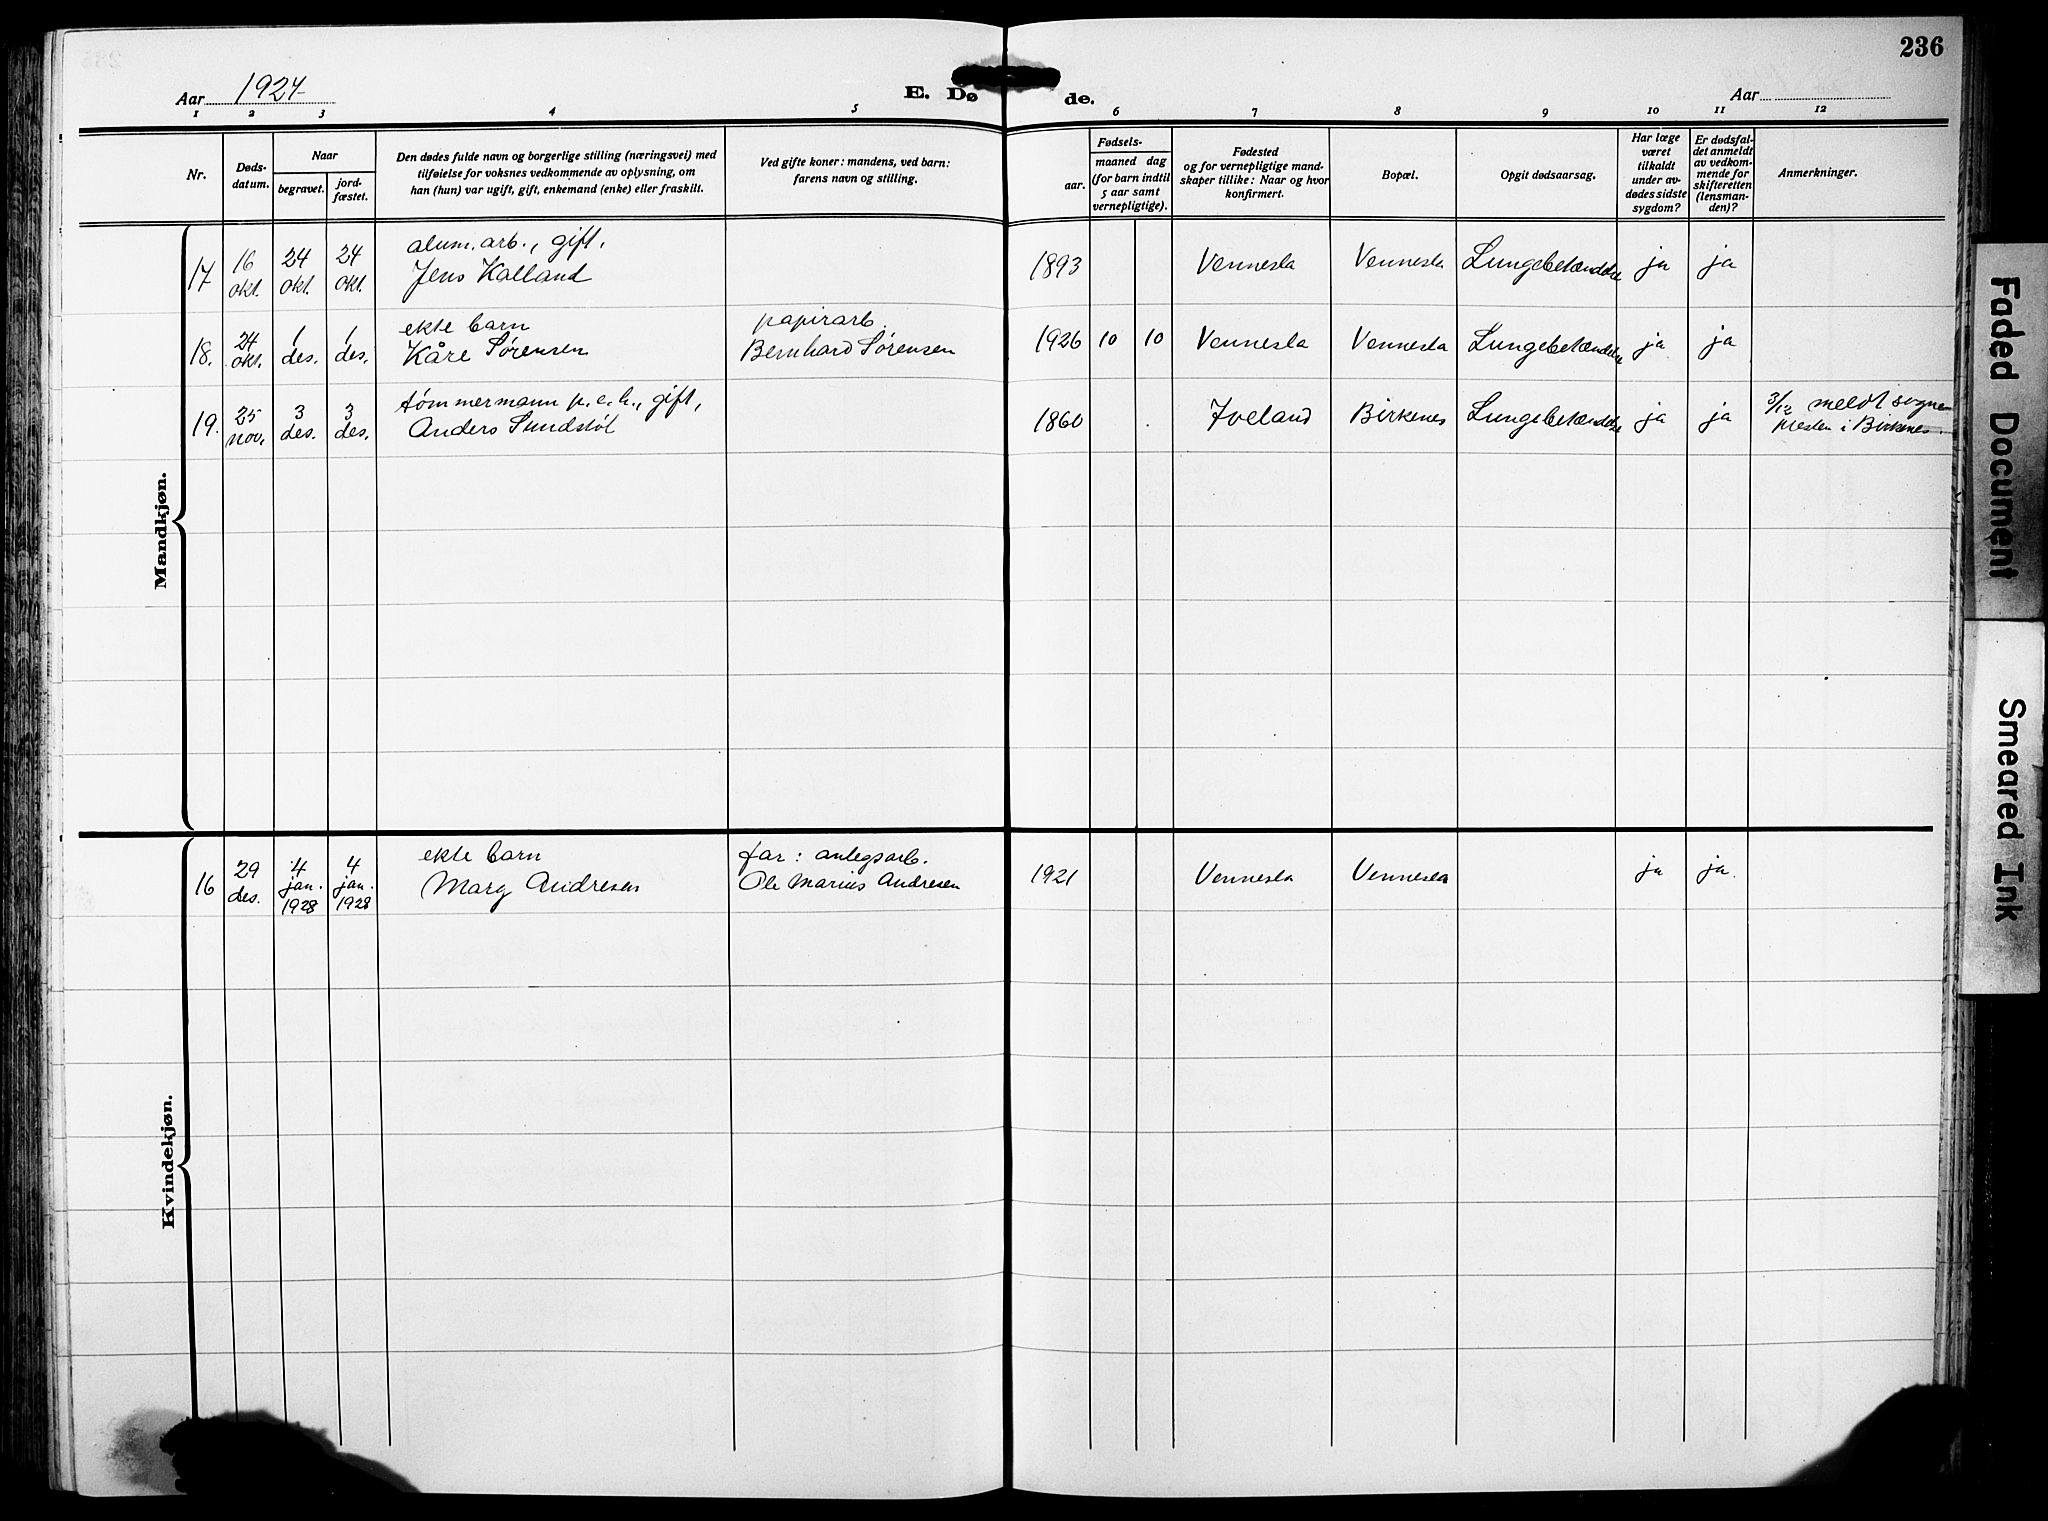 236
Aar 1927
E. Dø de.
Aar
1 2 3 4 5 6 7 8 9 10 11 12
Nr.
Døds-
datum.
Naar
begravet.
jord-
fæstet.
Den dødes fulde navn og borgerlige stilling (næringsvei) med
tilføielse for voksnes vedkommende av oplysning, om
han (hun) var ugift, gift, enkemand (enke) eller fraskilt.
Ved gifte koner: mandens, ved barn:
farens navn og stilling.
Fødsels-
aar.
maaned dag
(for barn indtil
5 aar samt
vernepligtige).
Fødested
og for vernepligtige mand-
skaper tillike: Naar og hvor
konfirmert.
Bopæl.
Opgit dødsaarsag.
Har læge
været
tilkaldt
under av-
dødes sidste
sygdom?
Er dødsfal-
det anmeldt
av vedkom-
mende for
skifteretten
(lensman-
den)?
Anmerkninger.
Mandkjøn.
17
16
okt.
24
okt.
24
okt.
alum. arb., gift,
Jens Kalland
1893
Vennesla
Vennesla
Lungebetændelse
ja
ja
18.
24
okt.
1
des.
1
des.
ekte barn
Kåre Sørensen
papirarb.
Bernhard Sørensen
1926
10
10
Vennesla
Vennesla
Lungebetændelse
ja
ja
19.
25
nov.
3
des.
3
des.
tømmermann p.e.h., gift,
Anders Sundstøl
1860
Iveland
Birkenes
Lungebetændelse
ja
ja
3/12 meldt sogne
presten i Birkenes.
Kvindekjøn.
16
29
des.
4
jan.
1928
4
jan.
1928
ekte barn
Mary Andresen
far: anlegsarb.
Ole Marius Andresen
1921
Vennesla
Vennesla
ja
ja.
Faded Document
Smeared Ink